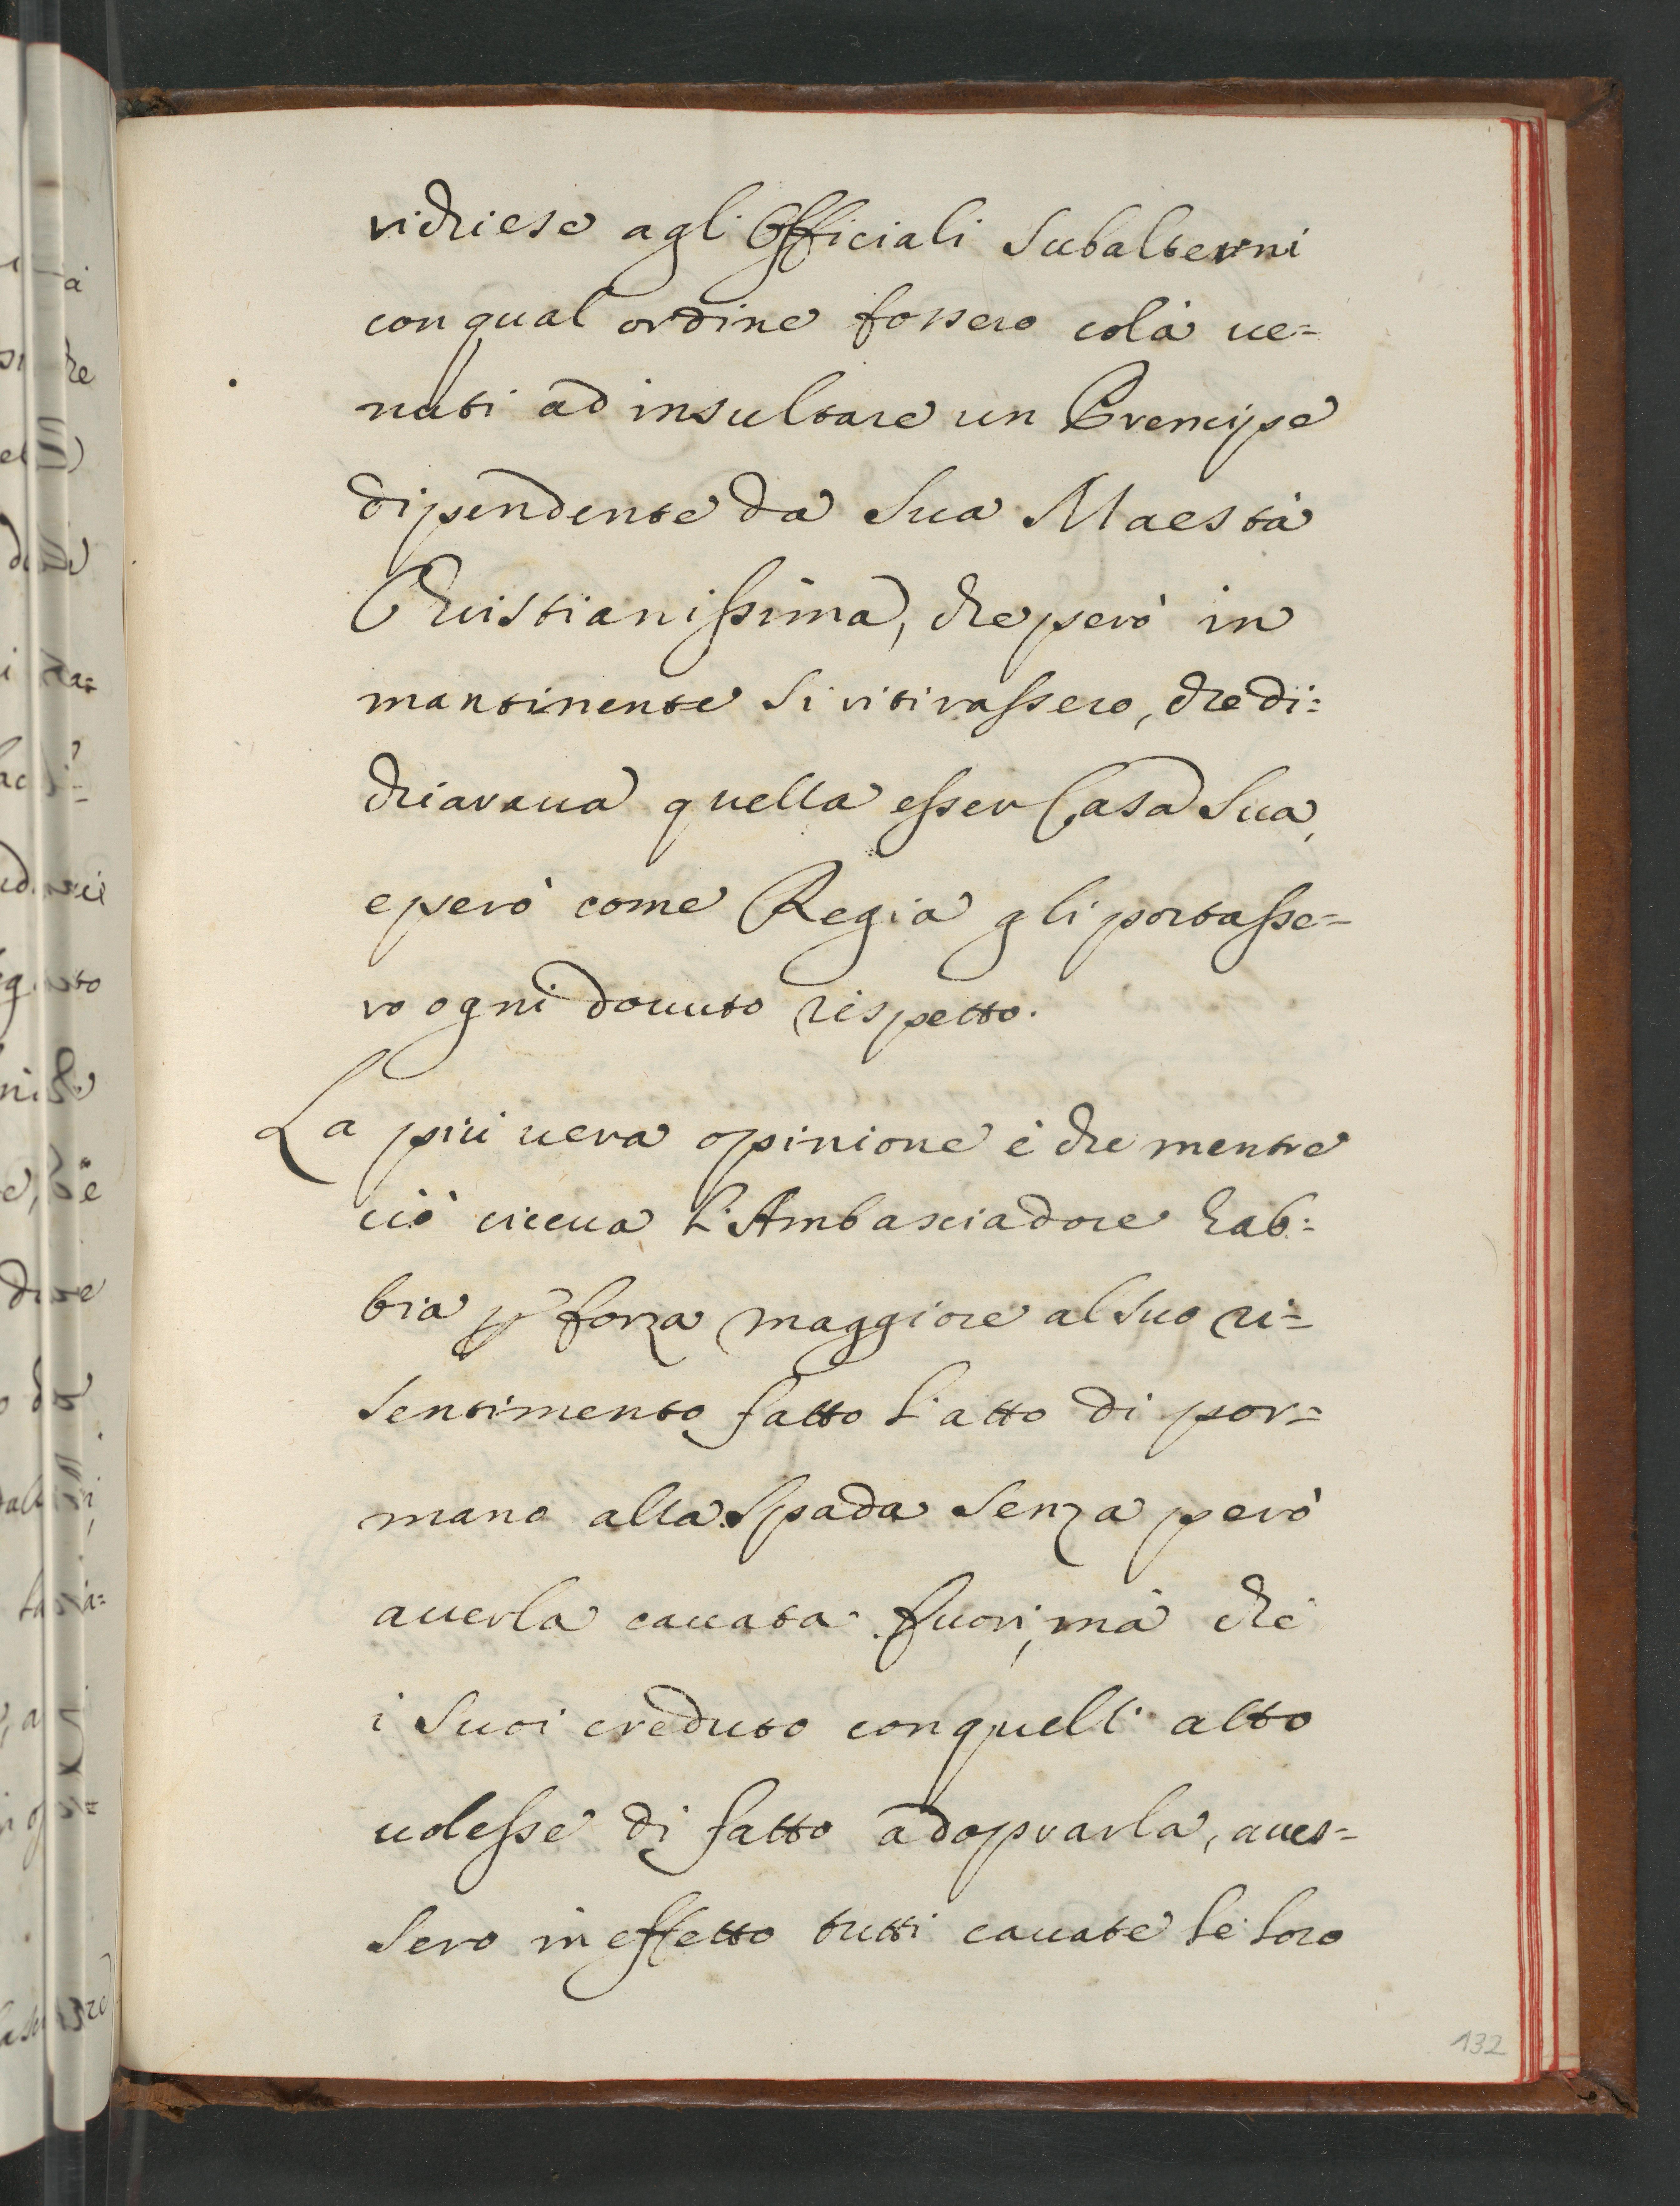 richiese agl'Officiali Subalterni
con qual ordine fossero colà ue=
nuti ad insultare un Prencipe
dipendente da Sua Maestà
Christianissima, che però in
mantinente Si ritirassero, che di:
chiaraua quella esser Casa Sua,
e però come Regia gli portasse=
ro ogni douuto rispetto.
La più uera opinione è che mentre
ciò diceua l'Ambasciadore hab:
bia p forza maggiore al suo ri=
Sentimento fatto l'atto di por=
mano alla Spada Senza però
auerla cauata fuori, mà che
i Suoi creduto con quell'atto
uolesse di fatto adoprarla, aues=
Sero in effetto tutti cauate le loro
132